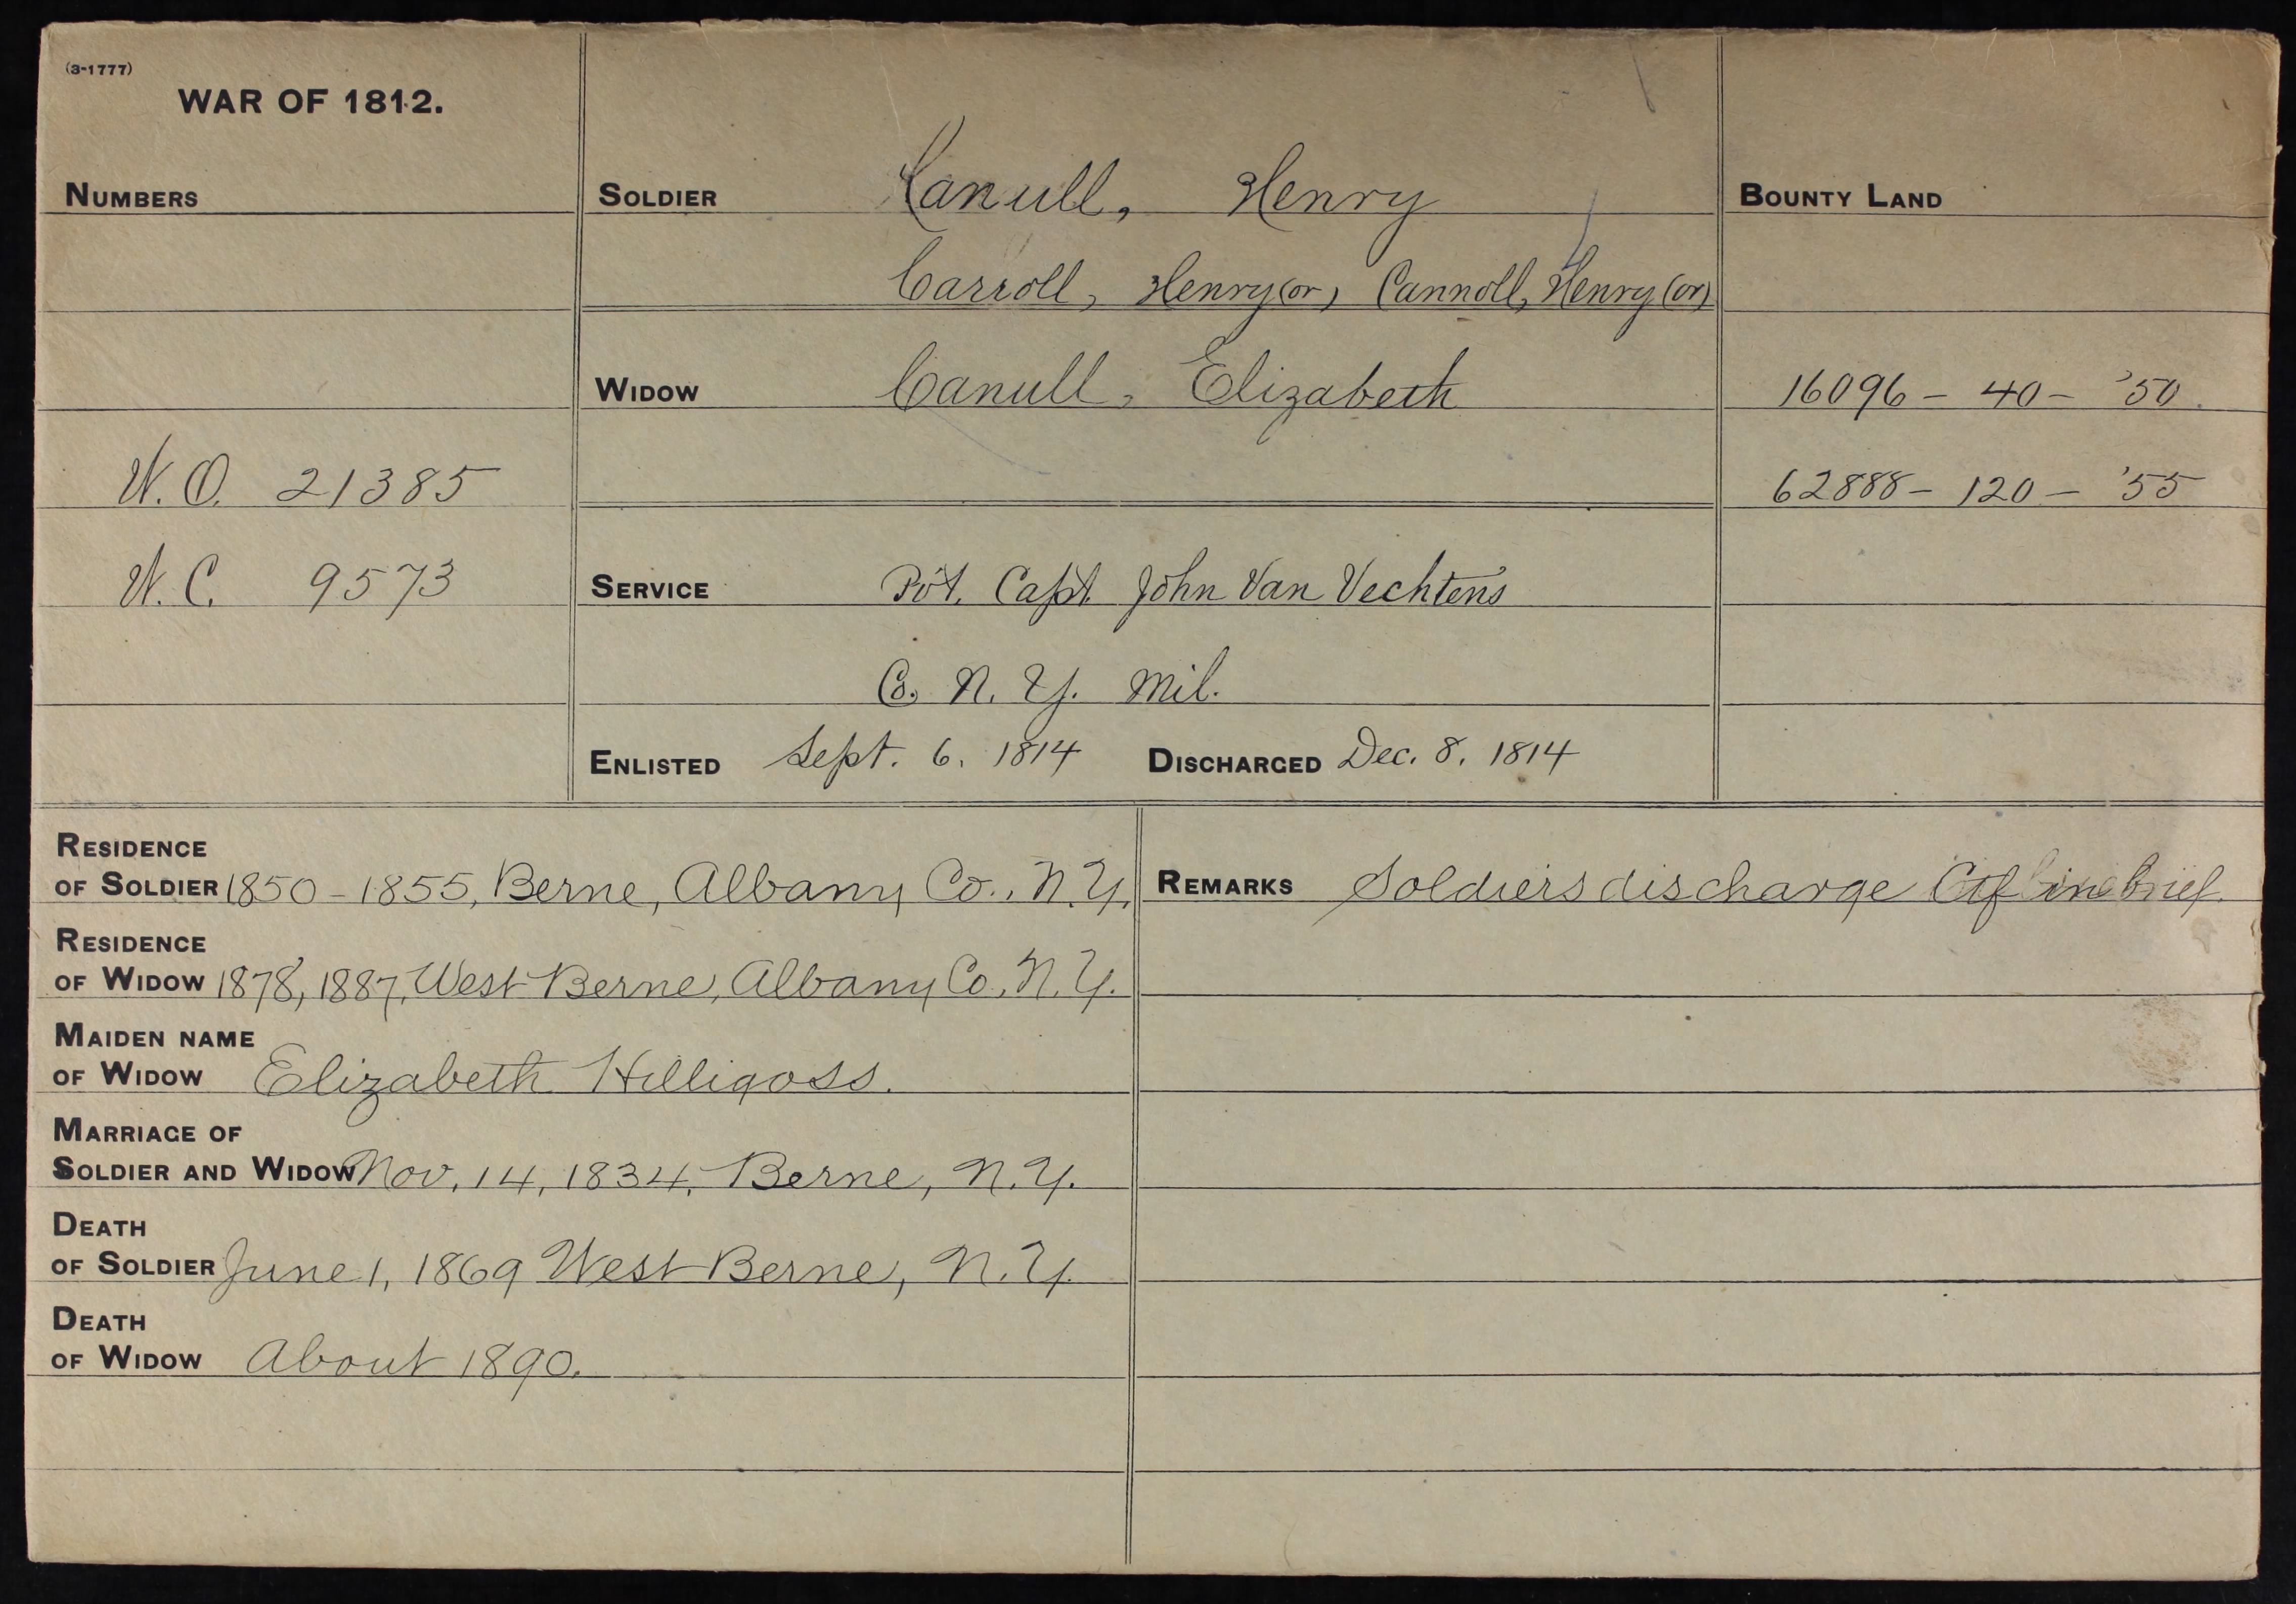 (3-1777)
WAR OF 1812.
NUMBERS
W.O. 21385
W.C. 9573
SOLDIER Canull, Henry
Carroll, Henry (or) Cannoll, Henry (or)
WIDOW Canull, Elizabeth
SERVICE Pvt. Capt John Van Vechtens
Co. N. Y. Mil.
ENLISTED Sept. 6. 1814 DISCHARGED Dec. 8. 1814
BOUNTY LAND
16096 - 40 - '50
62888 - 120 - '55
RESIDENCE
OF SOLDIER 1850-1855, Berne, Albany Co., N.Y.
RESIDENCE
OF WIDOW 1878, 1887, West Berne, Albany Co. N.Y.
MAIDEN NAME
OF WIDOW Elizabeth Hilligoss.
MARRIAGE OF
SOLDIER AND WIDOW Nov. 14, 1834, Berne, N.Y.
DEATH
OF SOLDIER June 1, 1869 West Berne, N.Y.
DEATH
OF WIDOW About 1890.
REMARKS Soldiers discharge Ctf in brief.